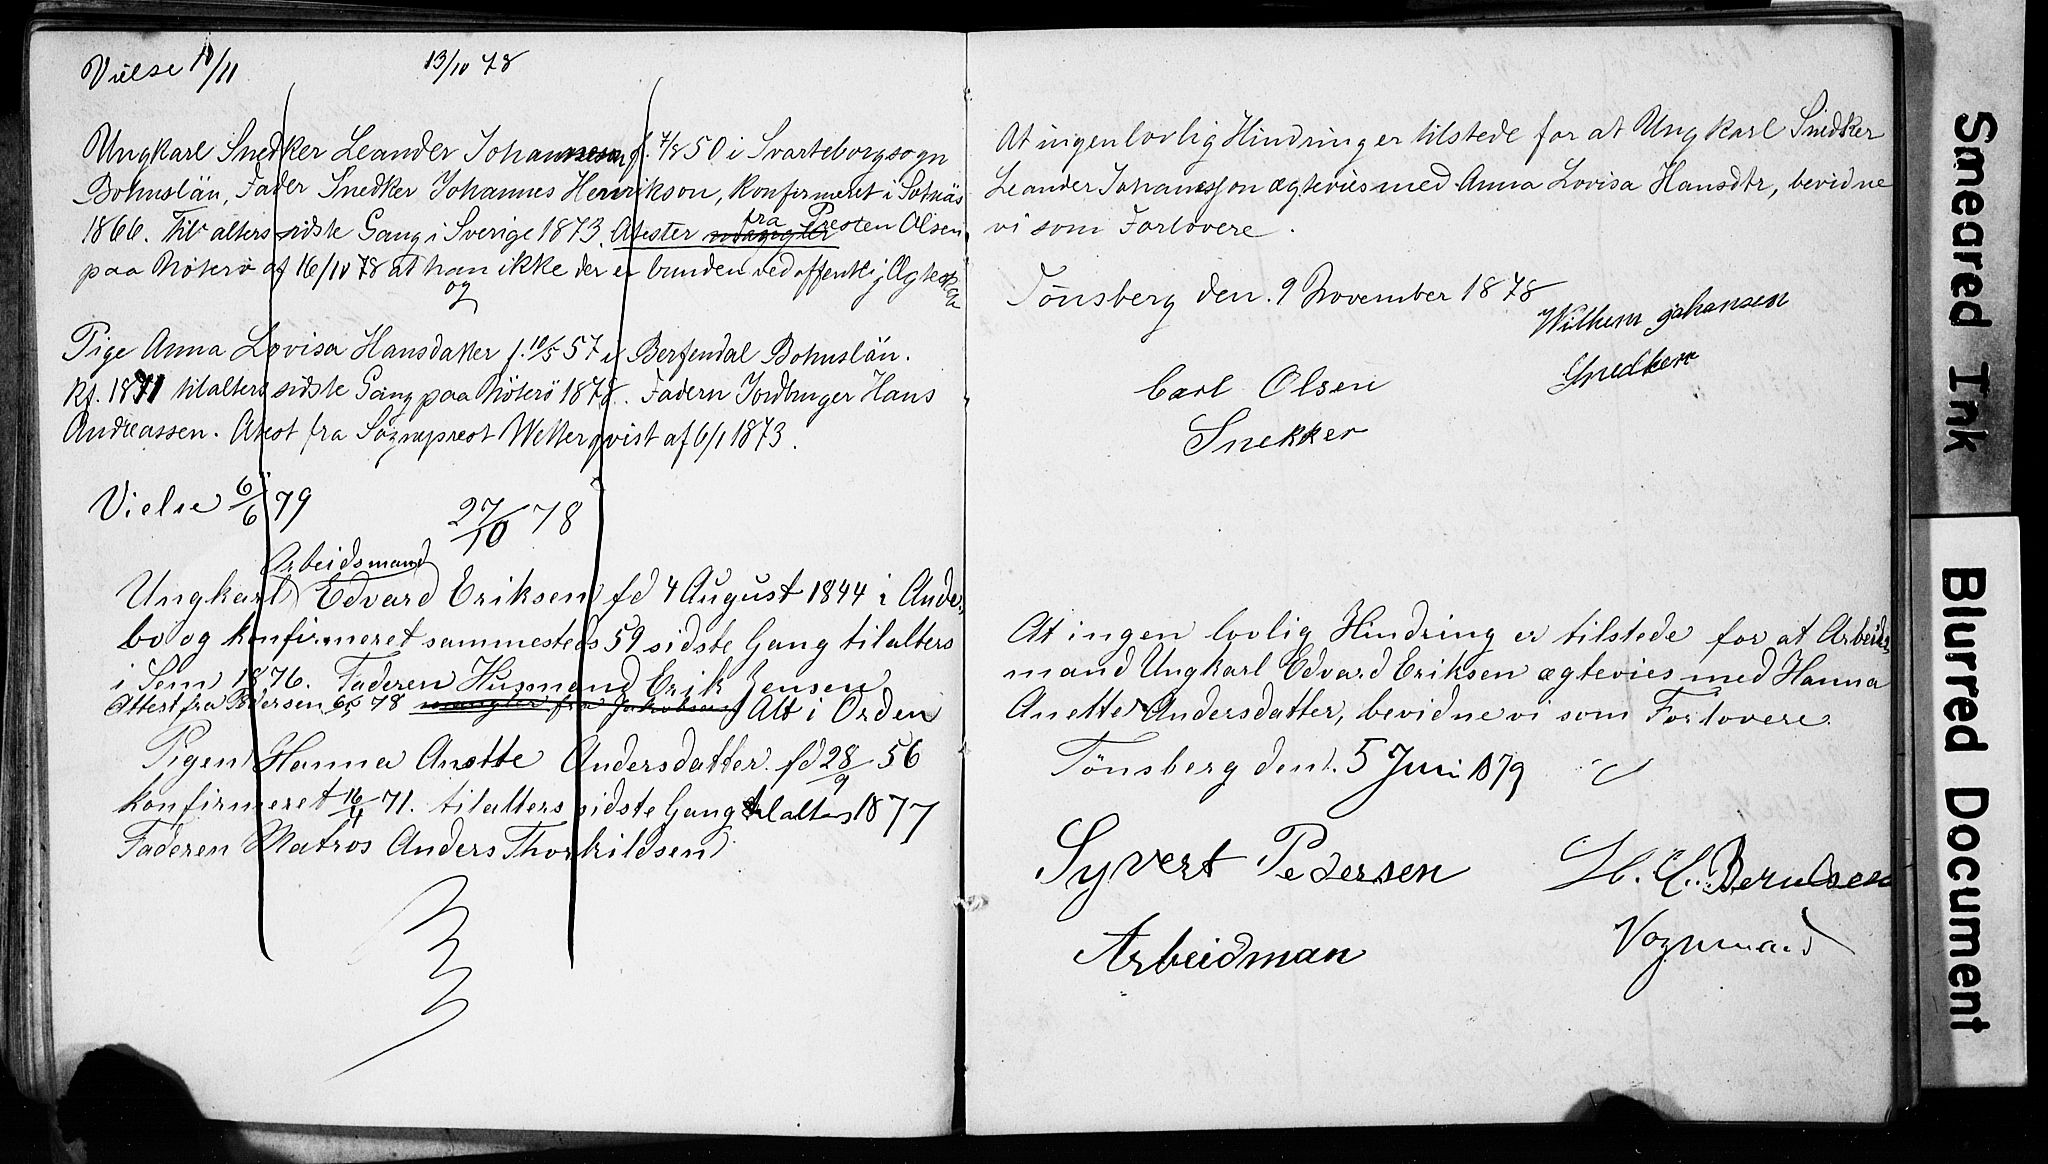 Vielse 10/11
13/10 78
Ungkarl Snedker Leander Johannesson f. 7/8 50 i Svarteborgsogn
Bohuslän, Fader Snedker Johannes Henrikson, Konfirmeret i Sotnäs
1866. Til alters sidste Gang i Sverige 1873. Atester fra Presten Olsen
paa Nöterö af 16/10 78 at han ikke der er bunden ved offentlig Ægteskab
og
Pige Anna Lovisa Hansdatter f. 10/5 57 i Berfendal Bohuslän.
Kf. 1871 tilalters sidste Gang paa Nöterö 1878. Fadern Jordbruger Hans
Andreassen. Atest fra Sogneprest Wetterqvist af 6/1 1873.
Vielse 6/6 79
27/10 78
Arbeidsmand
Ungkarl Edvard Eriksen fd 4 August 1844 i Ande-
bo og konfirmeret sammesteds 59 sidste Gang tilalters
i Sem 1876. Faderen Husmand Erik Jensen
Attest fra Pedersen 6/5 78 mangler fra Jakobsen Alt i Orden
Pigen Hanna Anette Andersdatter fd 28/9 56
konfirmeret 16/4 71. tilalters sidste Gang tilalters 1877
Faderen Matros Anders Thorkildsen
At ingen lovlig Hindring er tilstede for at Ungkarl Snedker
Leander Johanesson ægtevies med Anna Lovisa Hansdtr, bevidne
vi som Forlovere.
Tönsberg den. 9 November 1878
Wilhem johansen
Snedker
Carl Olsen
Snekker
At ingen lovlig Hindring er tilstede for at Arbeids
mand Ungkarl Edvard Eriksen ægtevies med Hanna
Anette Andersdatter, bevidne vi som Forlovere.
Tönsberg den. 5 Juni 1879
Syvert Pedersen
Arbeidman
H. C. Berulsen
Vognmand
Smeared Ink
Blurred Document